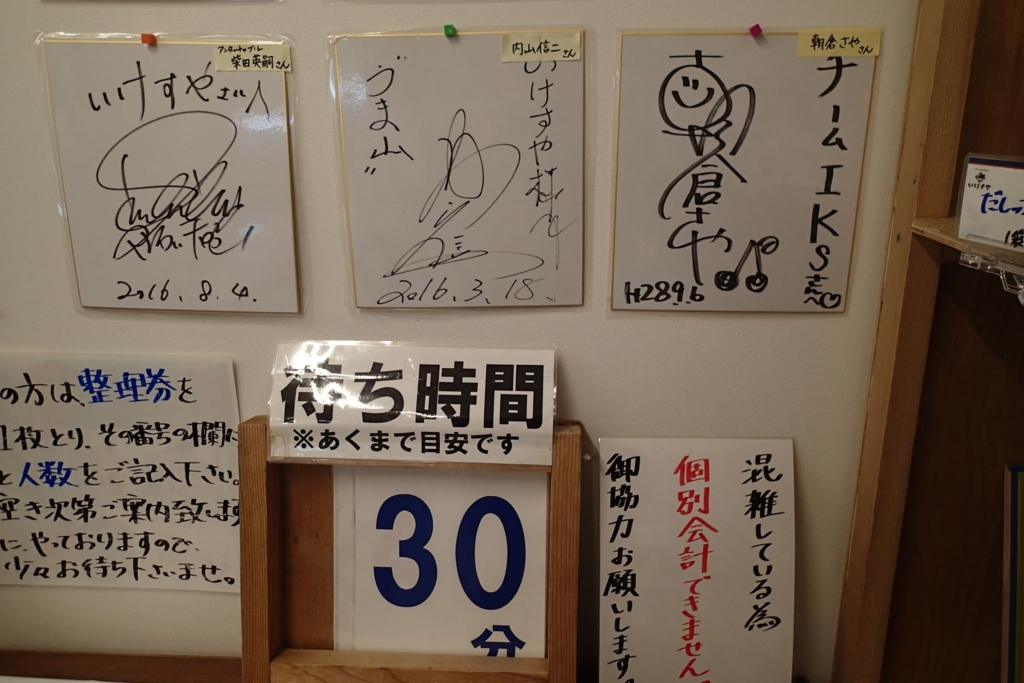 アンタッチャブル
柴田英嗣さん
いけすやさんへ
2016.8.4.
内山信二さん
いけすや様江
"うま山"
2016.3.18.
朝倉さやさん
チームIKSさんへ♡
朝倉さや
H28 9.6
いけすや
だしっ
の方は、整理券を
1枚とり、その番号の欄に
と人数をご記入下さい。
空き次第ご案内致します
に、やっておりますので、
少々お待ち下さいませ。
待ち時間
※あくまで目安です
30
分
混雑している為
個別会計できません。
御協力お願いします。